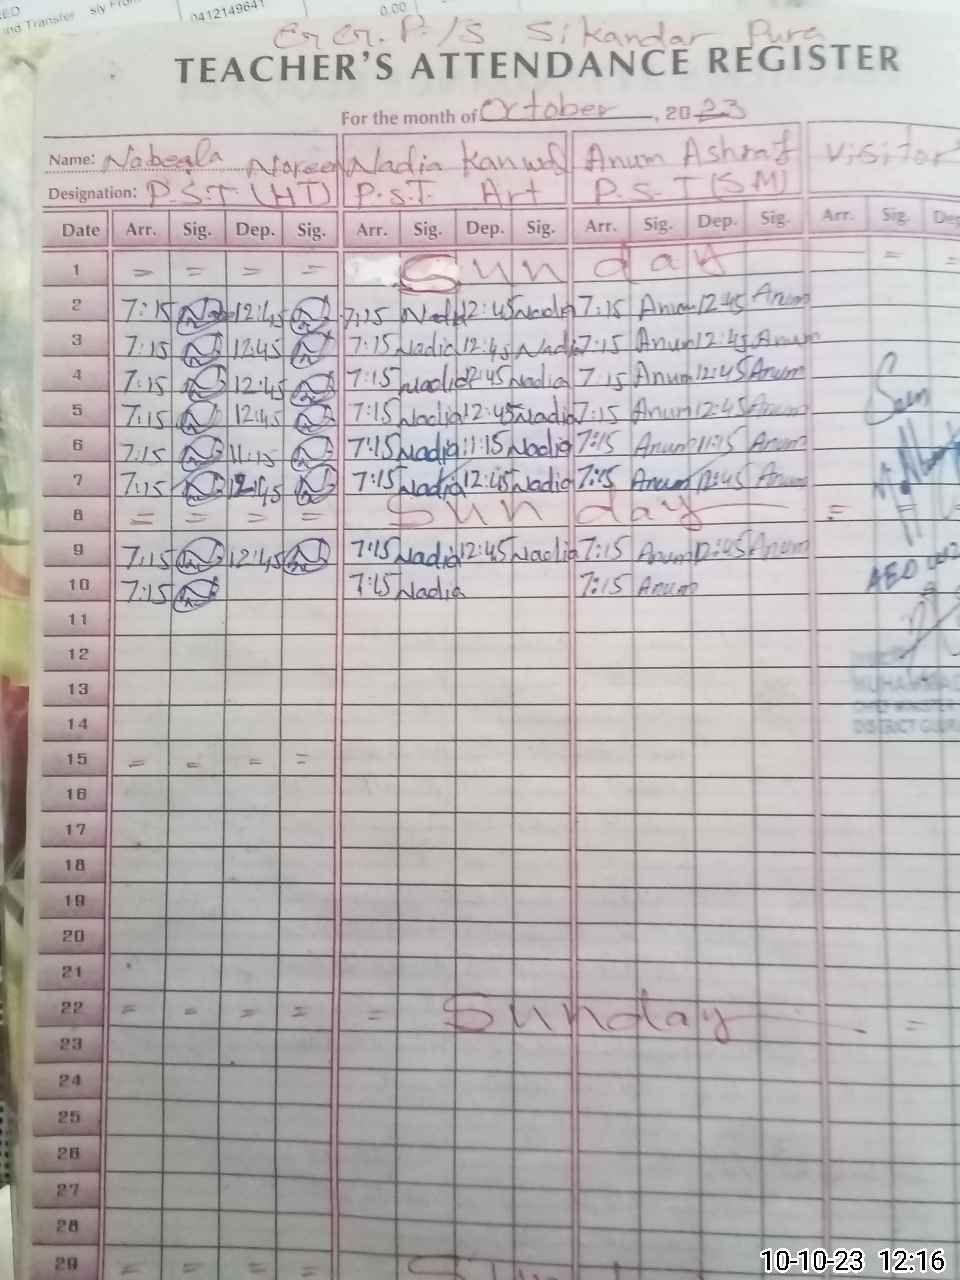 ED
ind Transfer
0412149641
0.00
Sikandar Pura
TEACHER'S ATTENDANCE REGISTER
For the month of October, 2023
Name: Nabeela Noreen Nadia Kanwal Anum Ashraf Visitor
Designation: P.S.T (HT) P.S.T. Art P.S.T (SM)
Date Arr. Sig. Dep. Sig. Arr. Sig. Dep. Sig. Arr. Sig. Dep. Sig. Arr. Sig. Dep
1 = = = = Sunday = =
2 7:15 12:45 7:15 Nadia 12:45 Nadia 7:15 Anum 12:45 Anum
3 7:15 12:45 7:15 Nadia 12:45 Nadia 7:15 Anum 12:45 Anum
4 7:15 12:45 7:15 Nadia 12:45 Nadia 7:15 Anum 12:45 Anum
5 7:15 12:45 7:15 Nadia 12:45 Nadia 7:15 Anum 12:45 Anum
6 7:15 11:15 7:15 Nadia 11:15 Nadia 7:15 Anum 11:15 Anum
7 7:15 12:45 7:15 Nadia 12:45 Nadia 7:15 Anum 12:45 Anum
8 = = = = Sunday =
9 7:15 12:45 7:15 Nadia 12:45 Nadia 7:15 Anum 12:45 Anum
10 7:15 7:15 Nadia 7:15 Anum
AEO
11
12
13
MUHAMMAD
14
DISTRICT
15 = = = =
16
17
18
19
20
21
22 = = = = = Sunday =
23
24
25
26
27
28
29 = = = =
10-10-23 12:16